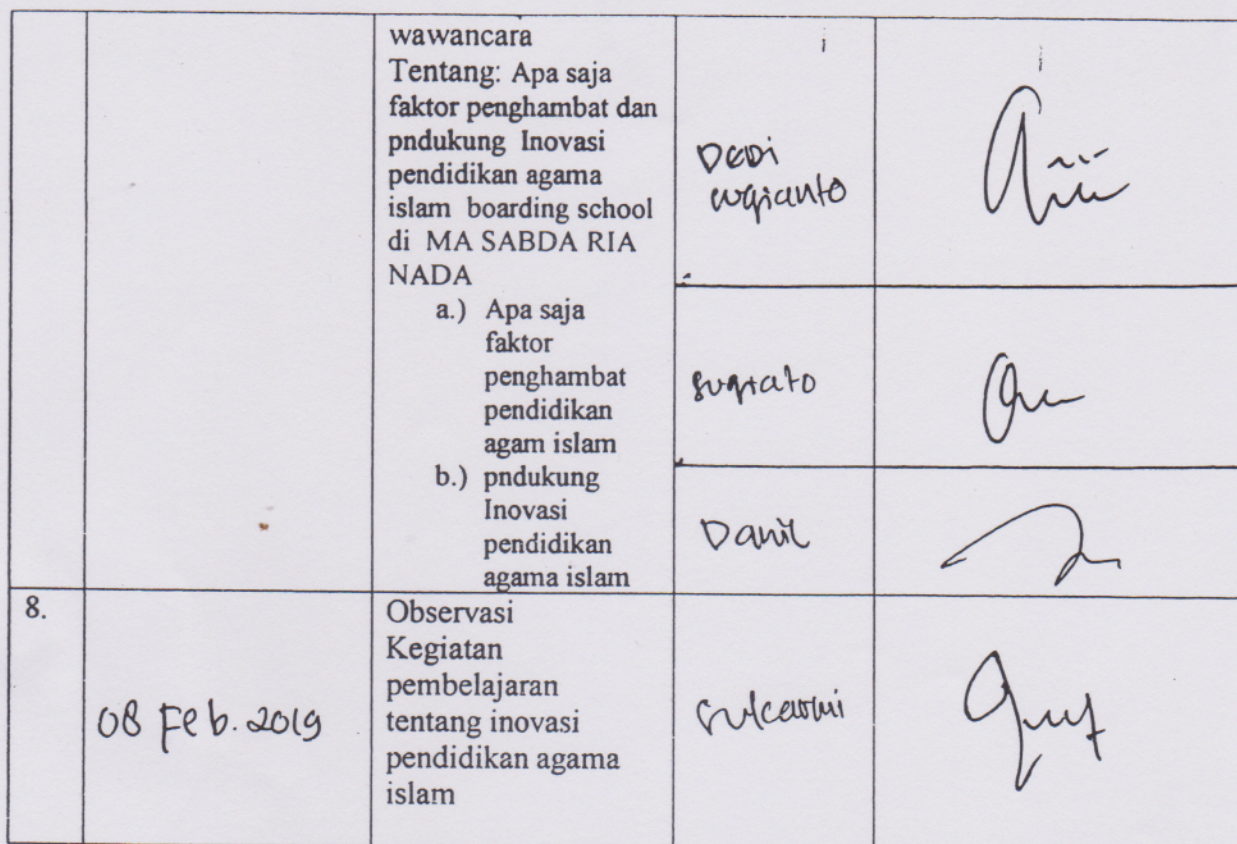 wawancara
Tentang: Apa saja
faktor penghambat dan
pndukung Inovasi
pendidikan agama
islam boarding school
di MA SABDA RIA
NADA
a.) Apa saja
faktor
penghambat
pendidikan
agam islam
b.) pndukung
Inovasi
pendidikan
agama islam
DEDI
sugianto
sugiato
Danil
8.
08 Feb. 2019
Observasi
Kegiatan
pembelajaran
tentang inovasi
pendidikan agama
islam